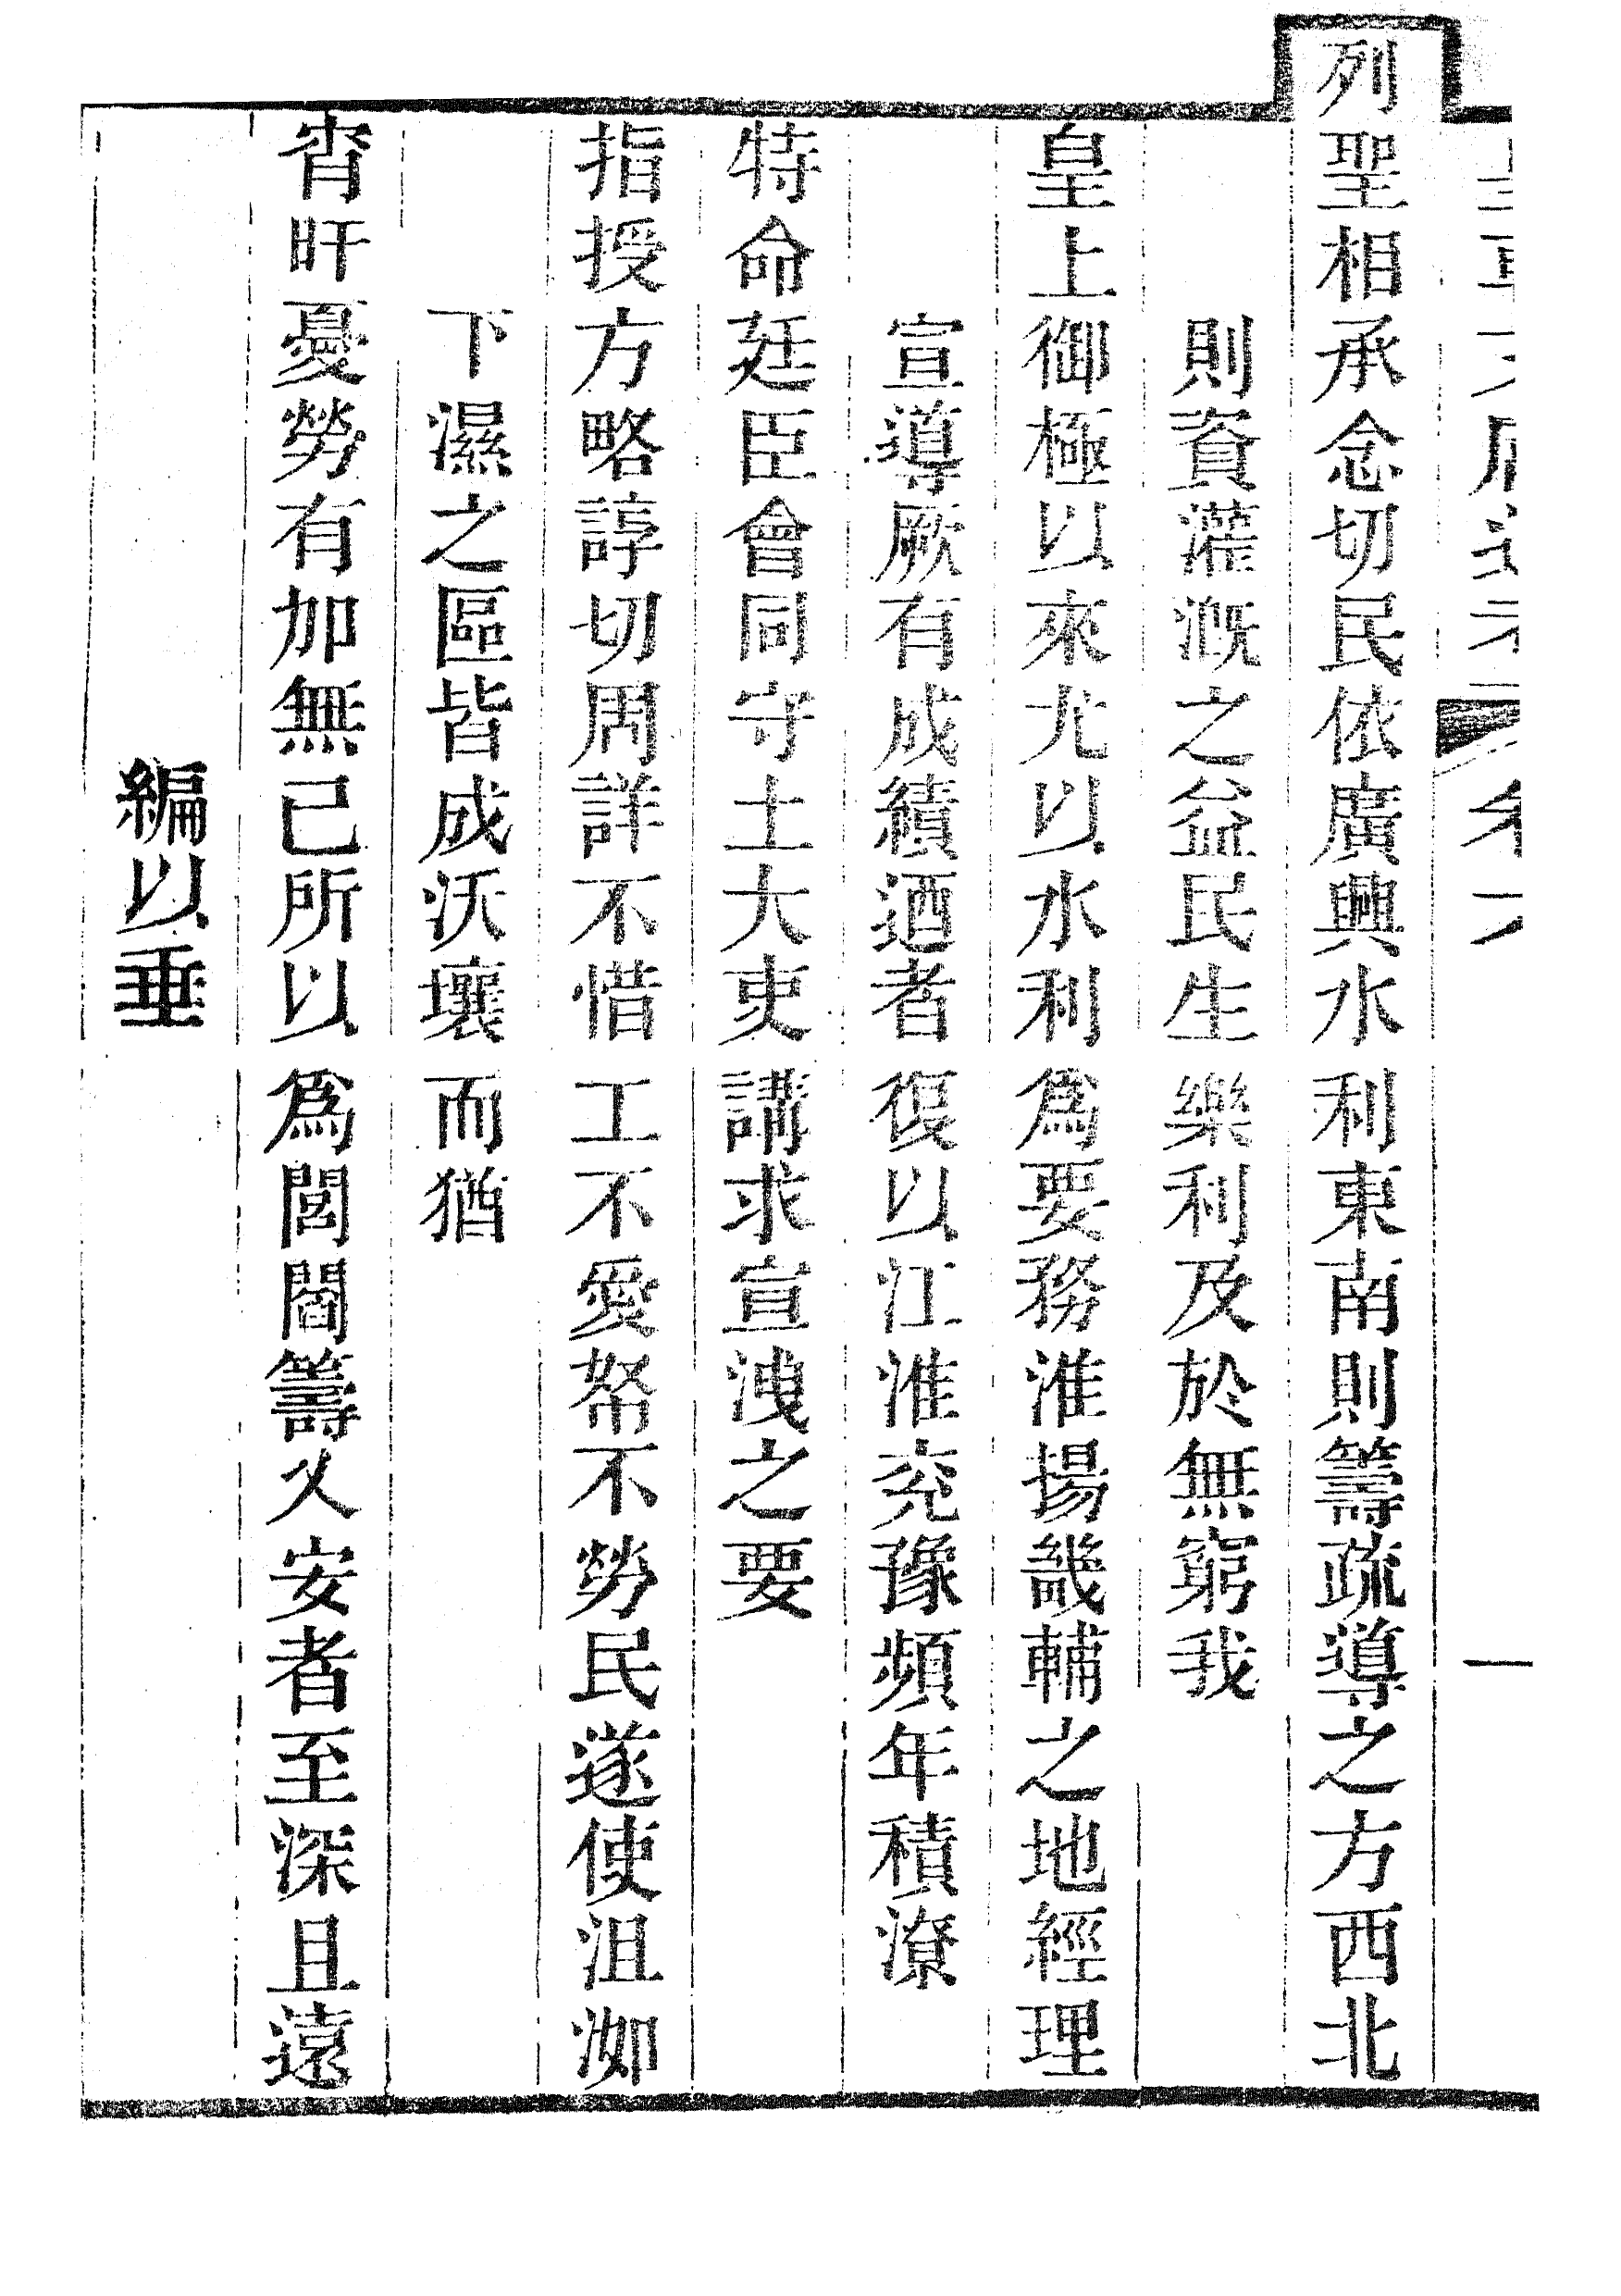 列聖相承念切民依廣興水利東南則籌疏導之方西北
則資灌溉之益民生樂利及於無窮我
皇上御極以來尤以水利爲要務淮揚畿輔之地經理
宣導厥有成績迺者復以江淮兖豫頻年積潦
特命廷臣會同守土大吏講求宣洩之要
指授方略諄切周詳不惜工不愛帑不勞民遂使沮洳
下濕之區皆成沃壤而猶
宵旰憂勞有加無己所以爲閭閻籌久安者至深且遠
編以垂